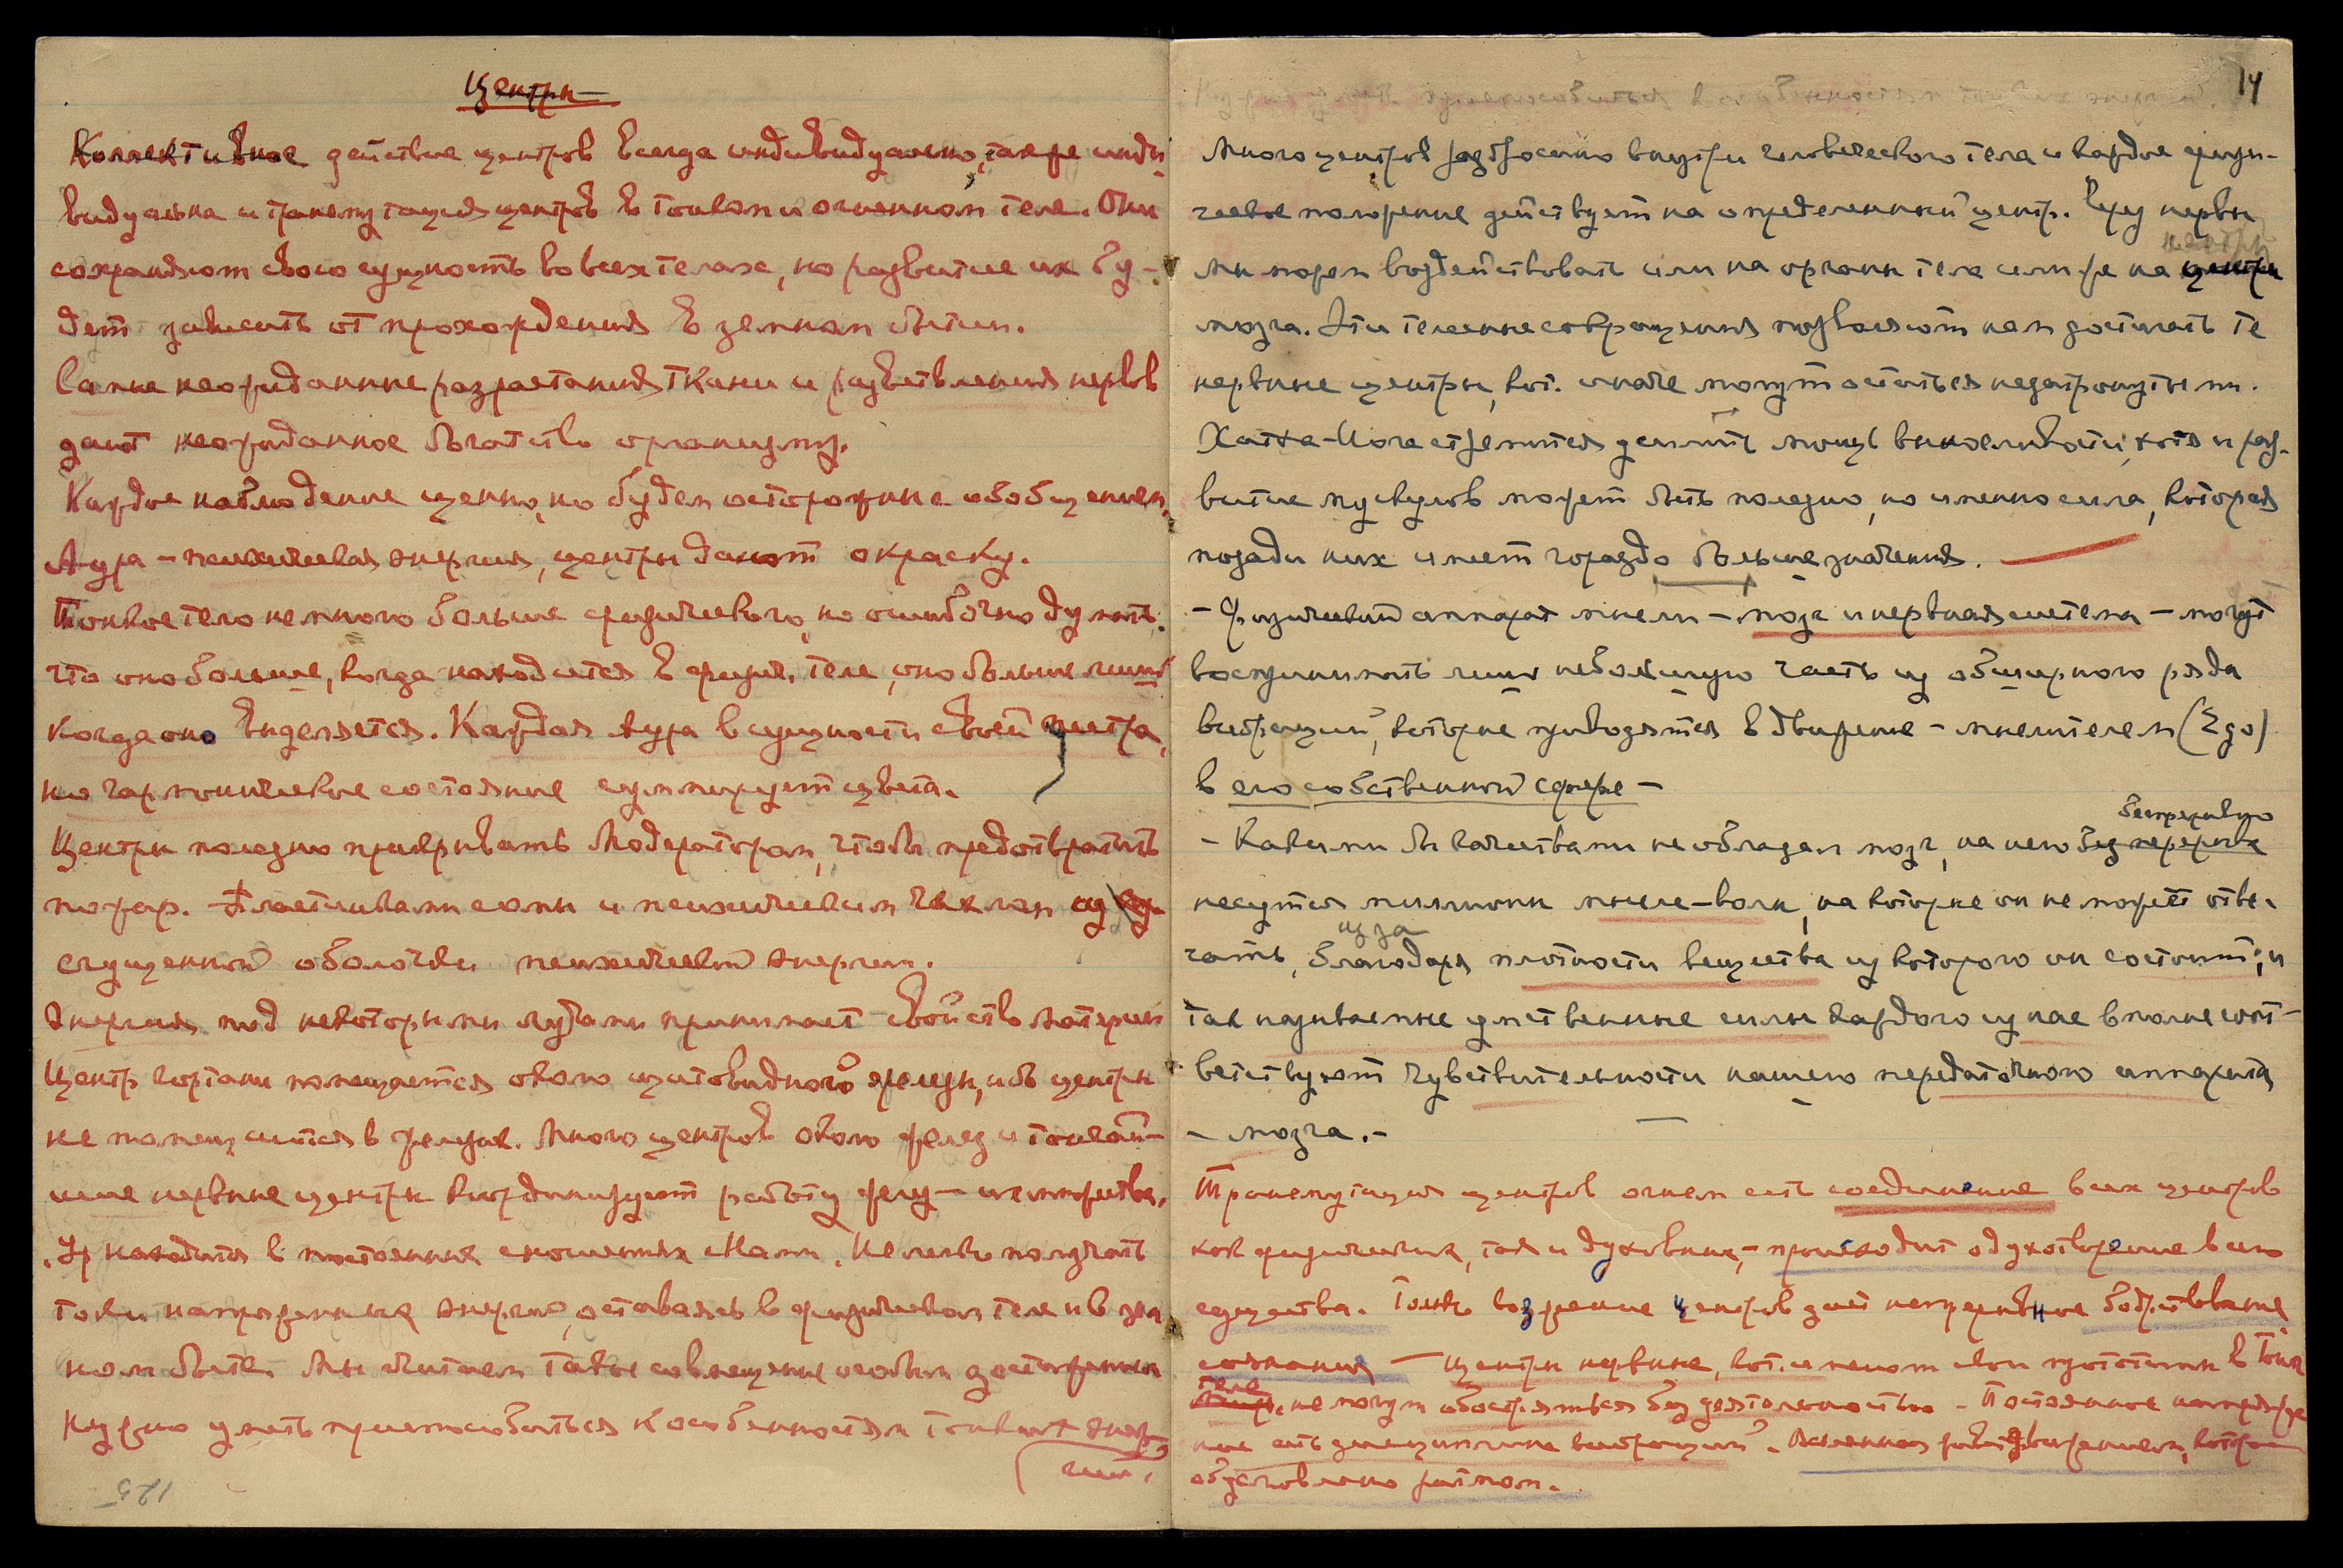 Центры
Коллективное действие центров всегда индивидуально, также инди
видуальна и трансмутация центров в тонком и огненном теле. Они
сохраняют свою сущность во всех телах, но развитие их бу-
дет зависить от прохождения в земном бытии.
Самые неожиданные разрастания ткани и разветвления нервов
дают неожиданное богатство организму.
Каждое наблюдение ценно, но будем осторожны с обобщением.
Аура – психическая энергия, центры дают окраску.
Тонкое тело немного больше физического, но ошибочно думать,
что оно больше, когда находится в физич. теле, оно больше лишь
когда оно выделяется. Каждая аура в сущности своей пестра,
но гармоническое состояние суммирует цвета.
Центры полезно прикрывать Модератором, чтобы предотвратить
пожар. Пластинками и психическим чехлом из
сгущенной оболочки психической энергии.
Энергия под некоторыми лучами принимает свойство материи
Центр гортани помещается около щитовидной железы, ибо центры
не помещаются в железах. Много центров около желез и тончай-
шие нервные центры координируют работу желез – их множества.
Ур. находится в постоянных сношениях с Нами. Нелегко получать
токи напряженных энергий, оставаясь в физическом теле и в зем
ном быте. Мы считаем такое совмещение особым достижением
Нужно уметь приспособиться к особенностям тонких энер
гий.
125
14
Много центров разбросано внутри человеческого тела и каждое физи-
ческое положение действует на определенный центр. Через нервы
центры
мы можем воздействовать или на органы тела или же на центры
мозга. Эти телесные сокращения позволяют нам достигать те
нервные центры, кот. иначе могут остаться незатронутыми.
Хатха-Йога стремится усилить мощь выносливости, хотя и раз-
витие мускулов может быть полезно, но именно сила, которая
позади них имеет гораздо больше значения.
– Физический аппарат мысли – мозг и нервная система – могут
воспринимать лишь небольшую часть из обширного ряда
вибраций, которые приводятся в движение – мыслителем (Ego)
в его собственной сфере –
беспрерывно
– Какими бы качествами не обладал мозг, на него без перерыва
несутся миллионы мысле-волн, на которые он не может отве-
из за
чать, благодаря плотности вещества из которого он состоит; и
так называемые умственные силы каждого из нас вполне соот-
ветствуют чувствительности нашего передаточного аппарата
– мозга. –
Трансмутация центров огнем есть соединение всех центров
как физических, так и духовных, – происходит одухотворение всего
существа. Только возжжение центров дает непрерывное бодрствование
сознания – Центры нервные, кот. имеют свои прототипы в тонк
теле
не могут обостряться без деятельности – Постоянное напряже
ние есть дисциплина вибраций. Вселенная движением, которое
обусловлено ритмом.